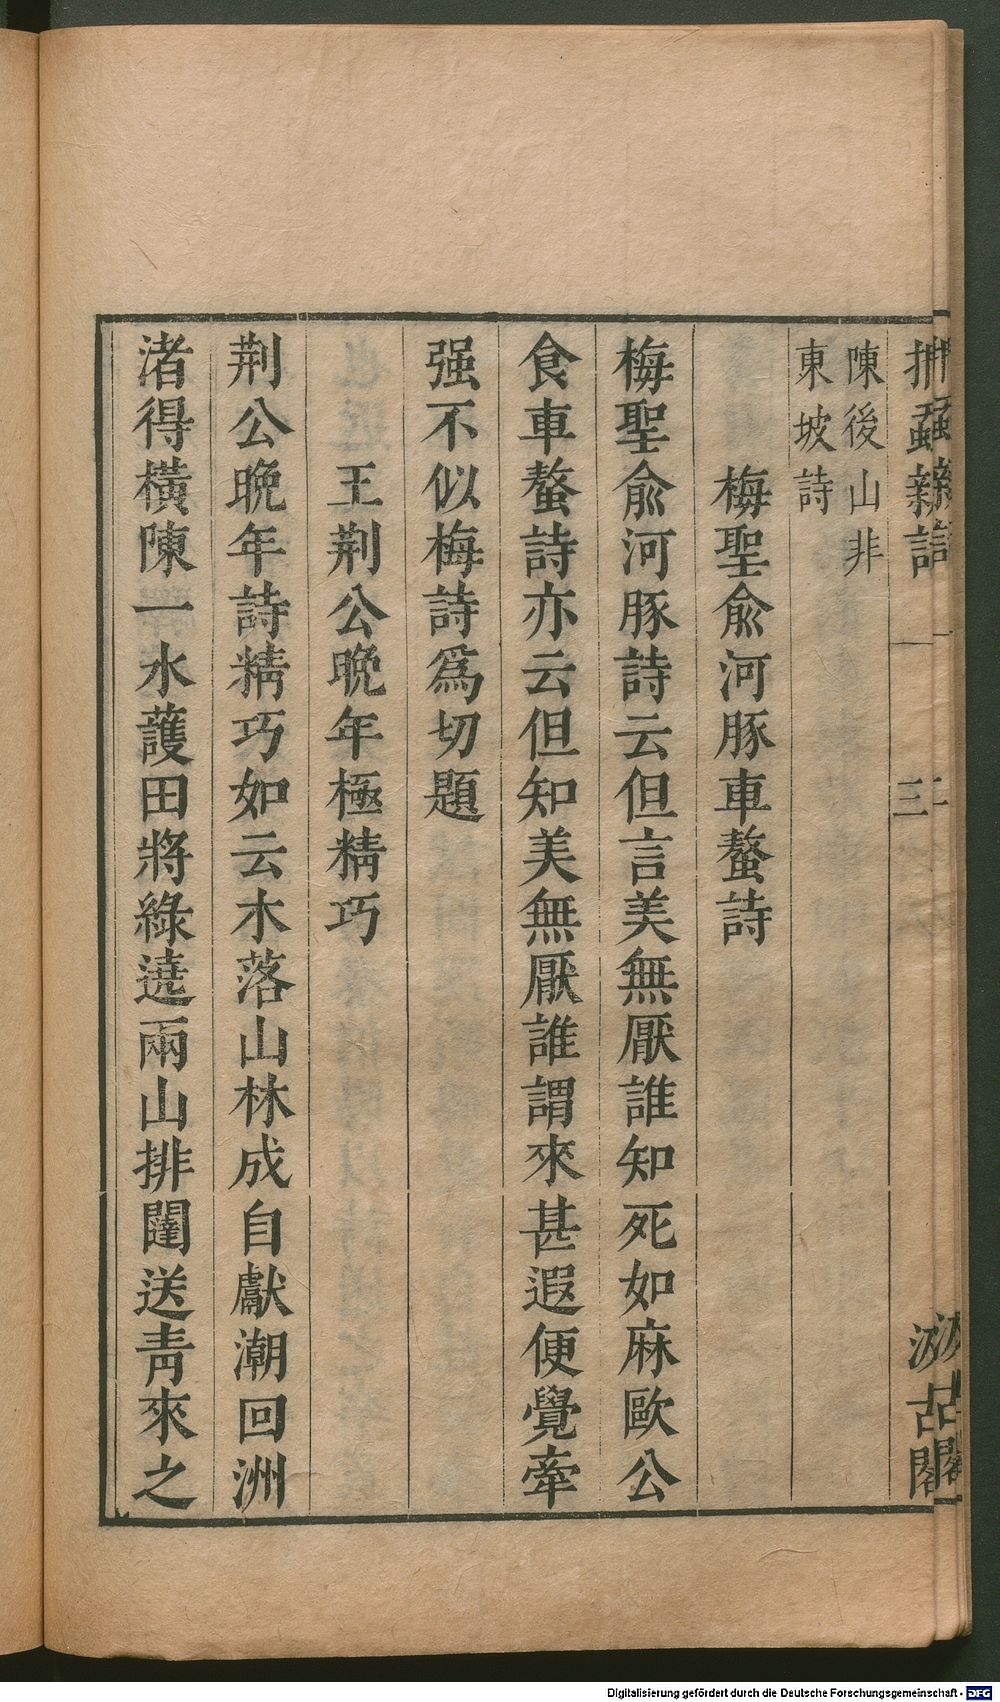 陳後山非
東坡詩
梅聖俞河豚車螯詩
梅聖俞河豚詩云但言美無厭誰知死如麻歐公
食車螯詩亦云但知美無厭誰謂來甚遐便覺牽
强不似梅詩為切題
王荆公晚年極精巧
荆公晚年詩精巧如云木落山林成自獻潮回洲
渚得橫陳一水護田將綠遶兩山排闥送青來之
三
汲古閣
Digitalisierung gefördert durch die Deutsche Forschungsgemeinschaft - DFG